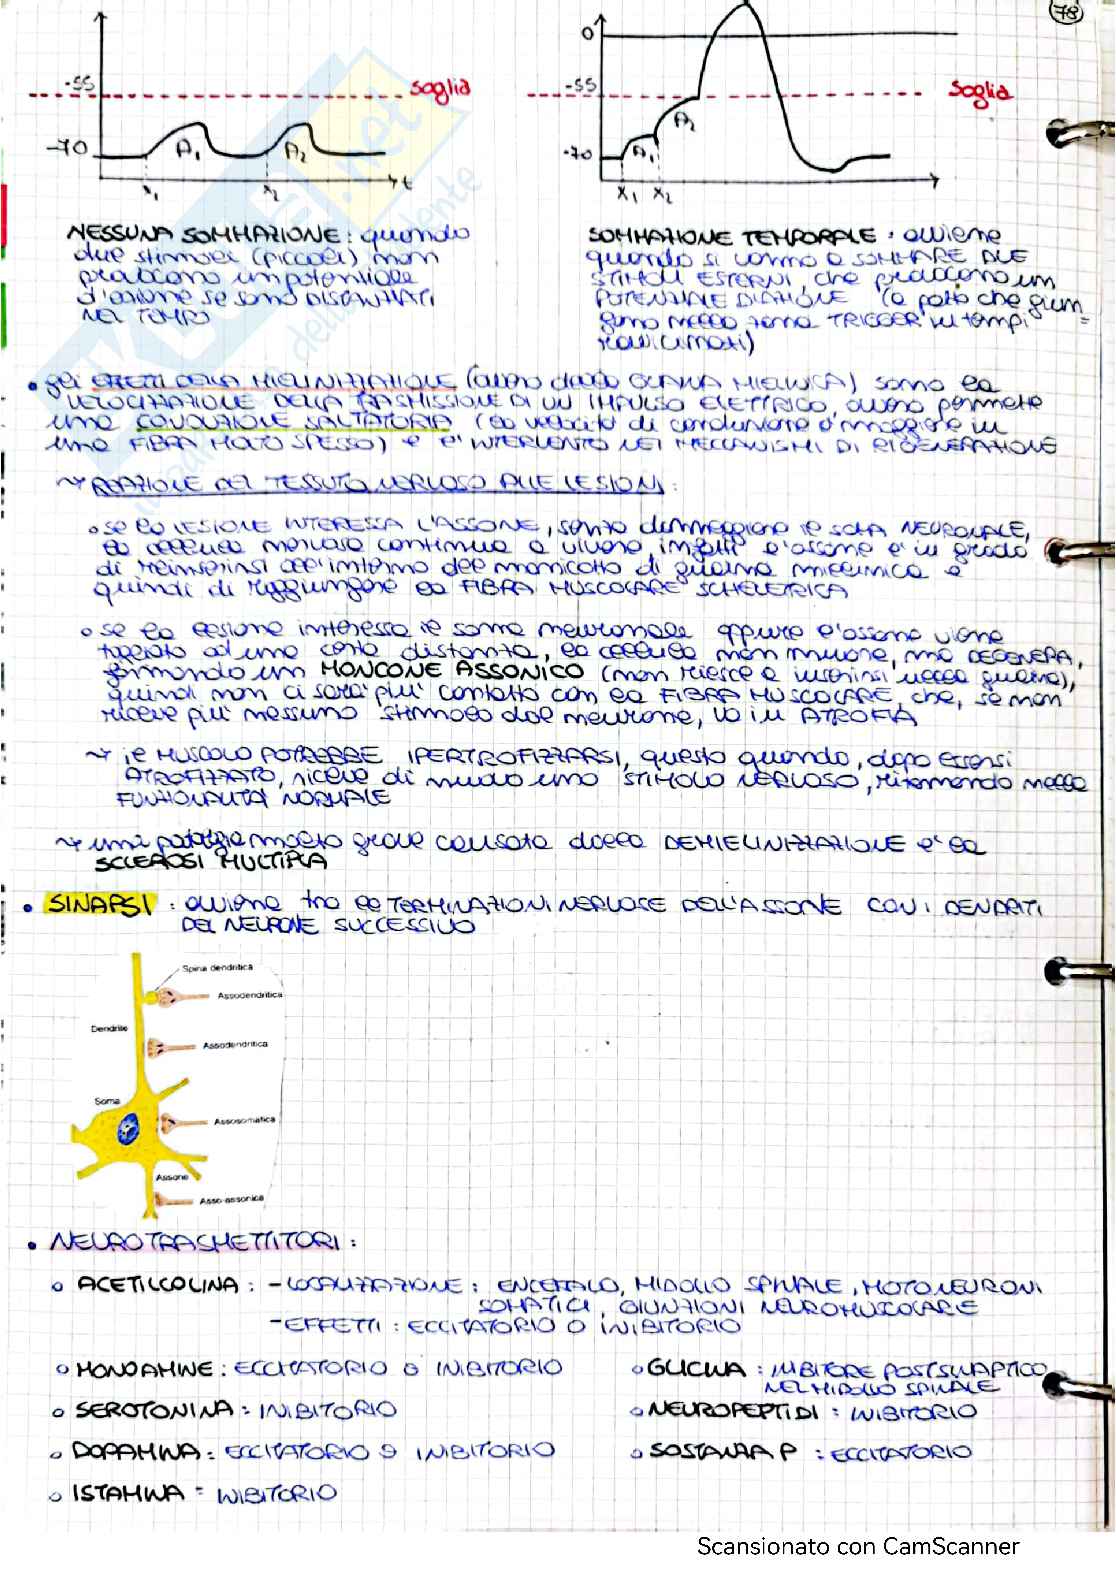 78
0
-55
soglia
-70
A1
A2
x1
x2
t
-55
soglia
-70
A1
A2
x1
x2
NESSUNA SOMMAZIONE: quando
due stimoli (piccoli) non
producono un potenziale
d'azione se sono DISTANZIATI
NEL TEMPO
SOMMAZIONE TEMPORALE: avviene
quando si vanno a SOMMARE DUE
STIMOLI ESTERNI, che producono un
POTENZIALE D'AZIONE (a patto che giun
gano nella zona TRIGGER in tempi =
ravvicinati)
• gli EFFETTI DELLA MIELINIZZAZIONE (ovvero della GUAINA MIELINICA) sono la
VELOCIZZAZIONE DELLA TRASMISSIONE DI UN IMPULSO ELETTRICO, ovvero permette
una CONDUZIONE SALTATORIA (la velocità di conduzione è maggiore in
una FIBRA MOLTO SPESSO) e l'INTERVENTO NEI MECCANISMI DI RIGENERAZIONE
~ REAZIONE DEL TESSUTO NERVOSO ALLE LESIONI:
o se la LESIONE INTERESSA L'ASSONE, senza danneggiare il SOMA NEURONALE,
la cellula nervosa continua a vivere, infatti l'assone è in grado
di reinserirsi all'interno del manicotto di guaina mielinica e
quindi di raggiungere la FIBRA MUSCOLARE SCHELETRICA
o se la lesione interessa il soma neuronale oppure l'assone viene
tagliato ad una certa distanza, la cellula non muore, ma DEGENERA,
formando un MONCONE ASSONICO (non riesce a inserirsi nella guaina),
quindi non ci sarà più contatto con la FIBRA MUSCOLARE, che, se non
riceve più nessuno stimolo dal neurone, va in ATROFIA
~ il MUSCOLO POTREBBE IPERTROFIZZARSI, questo quando, dopo essersi
ATROFIZZATO, riceve di nuovo uno STIMOLO NERVOSO, ritornando nella
FUNZIONALITÀ NORMALE
~ una patologia molto grave causata dalla DEMIELINIZZAZIONE è la
SCLEROSI MULTIPLA
• SINAPSI: avviene tra le TERMINAZIONI NERVOSE DELL'ASSONE CON I DENDRITI
DEL NEURONE SUCCESSIVO
Spina dendritica
Assodendritica
Dendrite
Assodendritica
Soma
Assosomatica
Assone
Asso-assonica
• NEUROTRASMETTITORI:
o ACETILCOLINA: - LOCALIZZAZIONE: ENCEFALO, MIDOLLO SPINALE, MOTONEURONI
SOMATICI, GIUNZIONI NEUROMUSCOLARE
- EFFETTI: ECCITATORIO O INIBITORIO
o MONOAMINE: ECCITATORIO O INIBITORIO
o GLICINA: INIBITORE POSTSINAPTICO
NEL MIDOLLO SPINALE
o SEROTONINA: INIBITORIO
o NEUROPEPTIDI: INIBITORIO
o DOPAMINA: ECCITATORIO O INIBITORIO
o SOSTANZA P: ECCITATORIO
o ISTAMINA: INIBITORIO
Scansionato con CamScanner